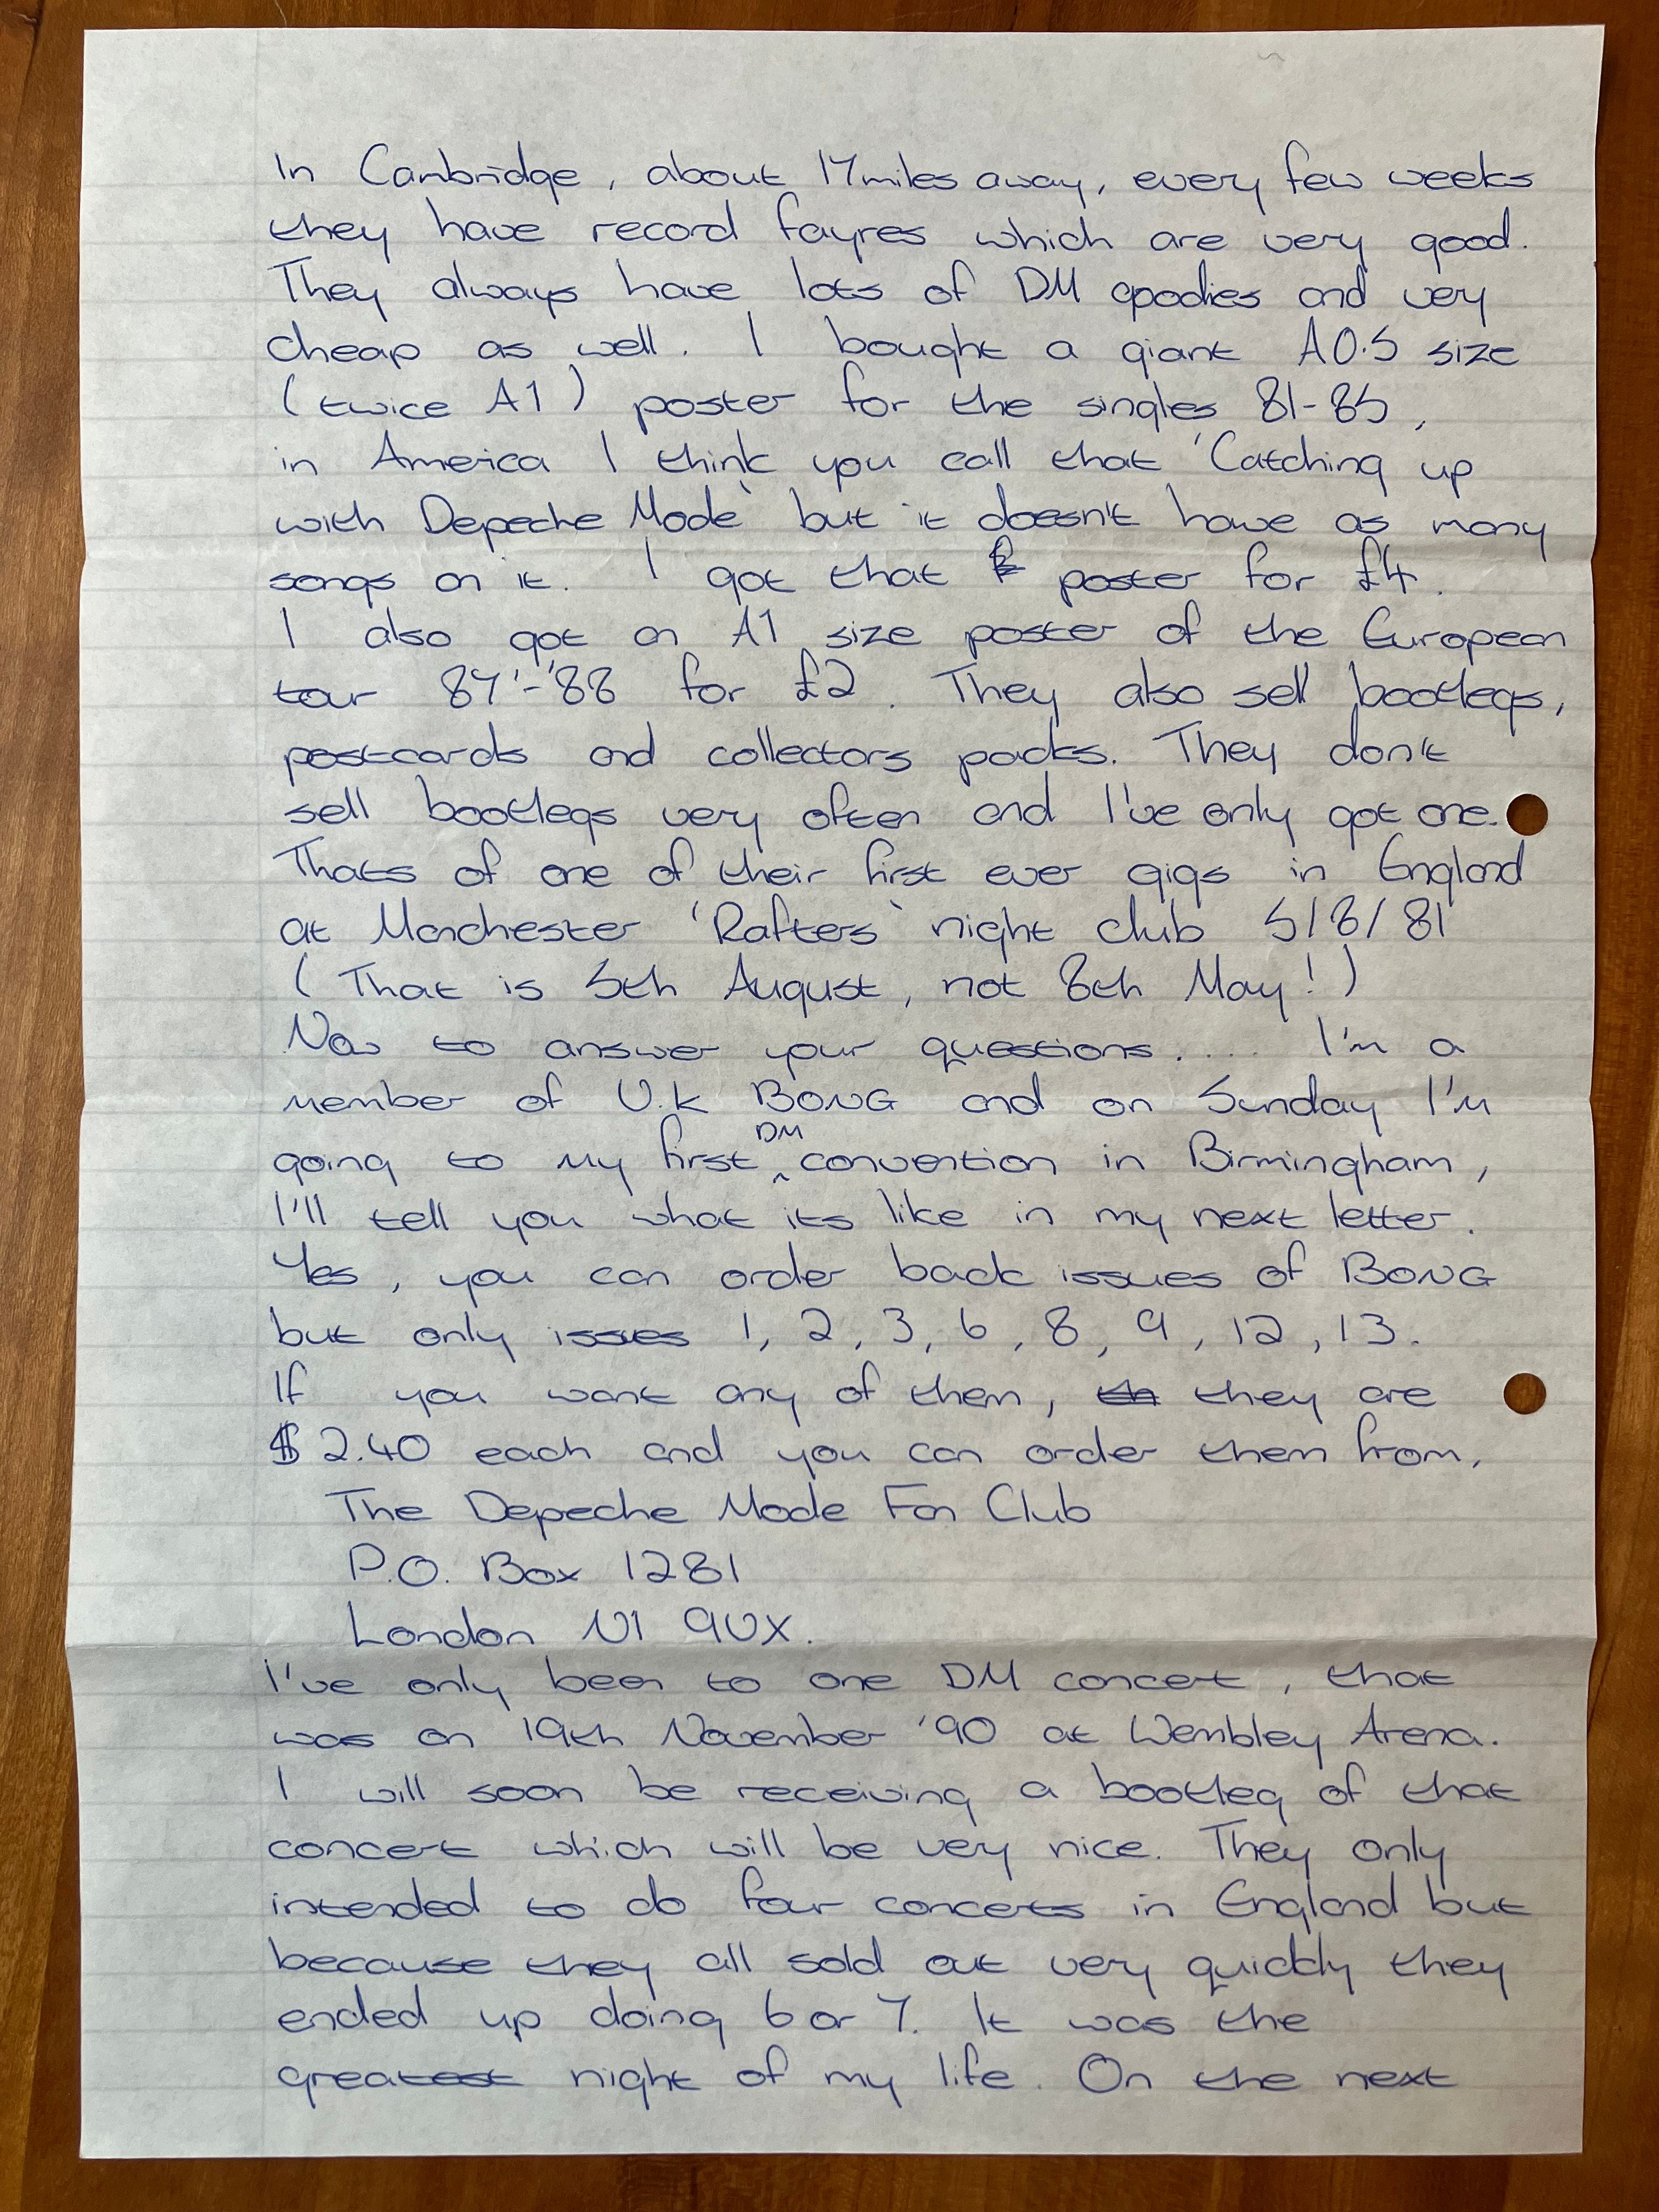 In Cambridge, about 17 miles away, every few weeks
they have record fayres which are very good.
They always have lots of DM goodies and very
cheap as well. I bought a giant A0.5 size
(twice A1) poster for the singles 81-85,
in America I think you call that 'Catching up
with Depeche Mode' but it doesn't have as many
songs on it. I got that poster for £4.
I also got an A1 size poster of the European
tour 87'-'88 for £2. They also sell bootlegs,
postcards and collectors packs. They don't
sell bootlegs very often and I've only got one.
Thats of one of their first ever gigs in England
at Manchester 'Rafters' night club 5/8/81
(That is 5th August, not 8th May!)
Now to answer your questions..... I'm a
member of U.K BONG and on Sunday I'm
going to my first DM convention in Birmingham,
I'll tell you what its like in my next letter.
Yes, you can order back issues of BONG
but only isses 1, 2, 3, 6, 8, 9, 12, 13.
If you want any of them, th they are
$2.40 each and you can order them from,
The Depeche Mode Fan Club
P.O. Box 1281
London N1 9UX.
I've only been to one DM concert, that
was on 19th November '90 at Wembley Arena.
I will soon be receiving a bootleg of that
concert which will be very nice. They only
intended to do four concerts in England but
because they all sold out very quickly they
ended up doing 6 or 7. It was the
greatest night of my life. On the next